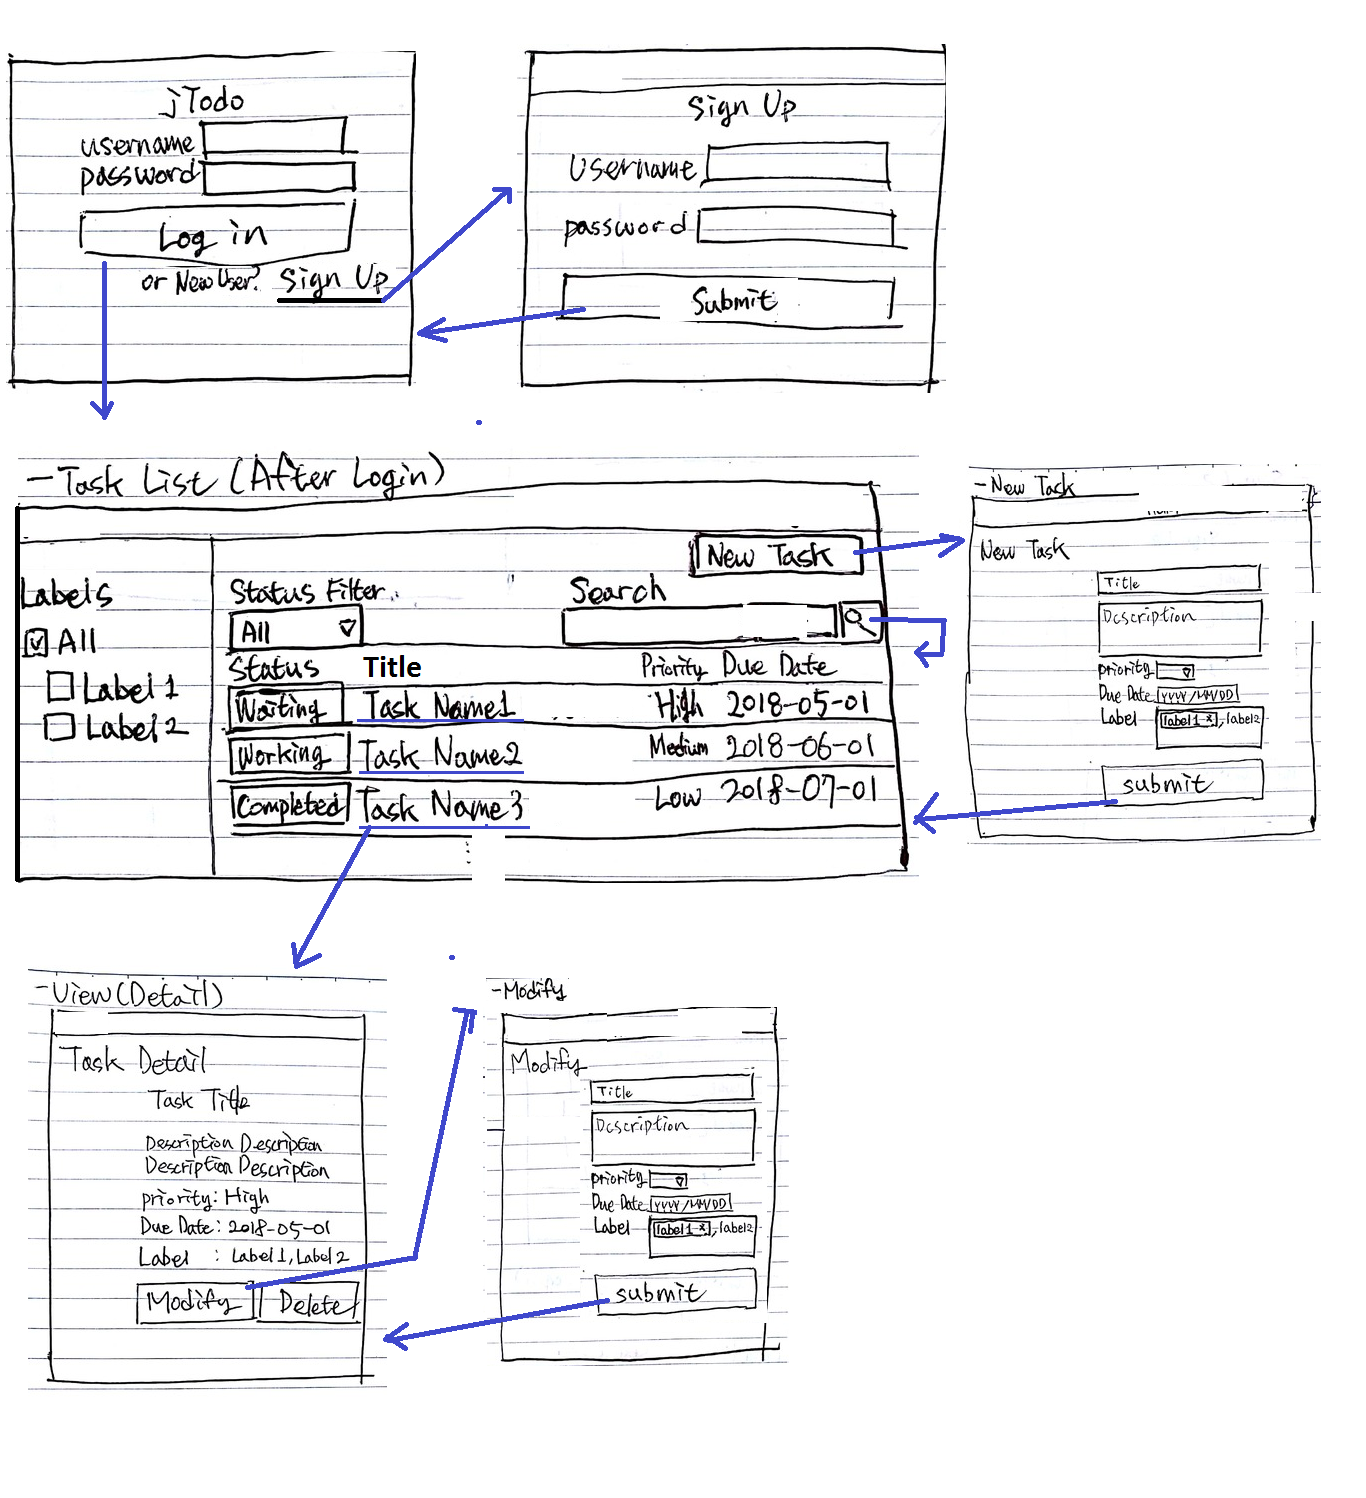 jTodo
username
password
Log in
or New User? Sign Up
Sign Up
Username
password
Submit
-Task List (After Login)
New Task
Labels
All
Label 1
Label 2
Status Filter
Search
All
Status Title Priority Due Date
Waiting Task Name1 High 2018-05-01
Working Task Name2 Medium 2018-06-01
Completed Task Name3 Low 2018-07-01
-New Task
New Task
Title
Description
priority
Due Date YYYY/MM/DD
Label label1 x, label2
submit
-View(Detail)
Task Detail
Task Title
Description Description
Description Description
priority: High
Due Date: 2018-05-01
Label : Label1, Label2
Modify Delete
-Modify
Modify
Title
Description
priority
Due Date YYYY/MM/DD
Label label1 x, label2
submit